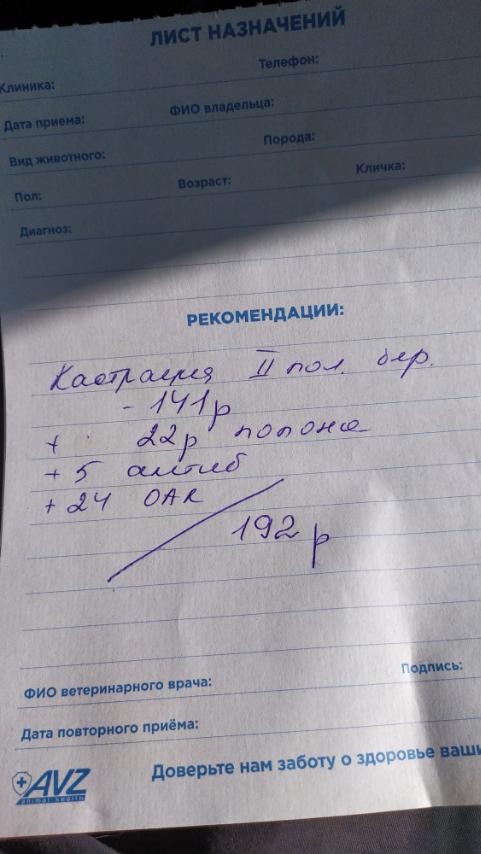 ЛИСТ НАЗНАЧЕНИЙ
Клиника: Телефон:
Дата приема: ФИО владельца:
Вид животного: Порода:
Пол: Возраст: Кличка:
Диагноз:
РЕКОМЕНДАЦИИ:
Кастрация II пол. бер.
- 141р
+ 22р попона
+ 5 антиб
+ 24 ОАК
192 р
ФИО ветеринарного врача: Подпись:
Дата повторного приёма:
AVZ
animal health
Доверьте нам заботу о здоровье ваши